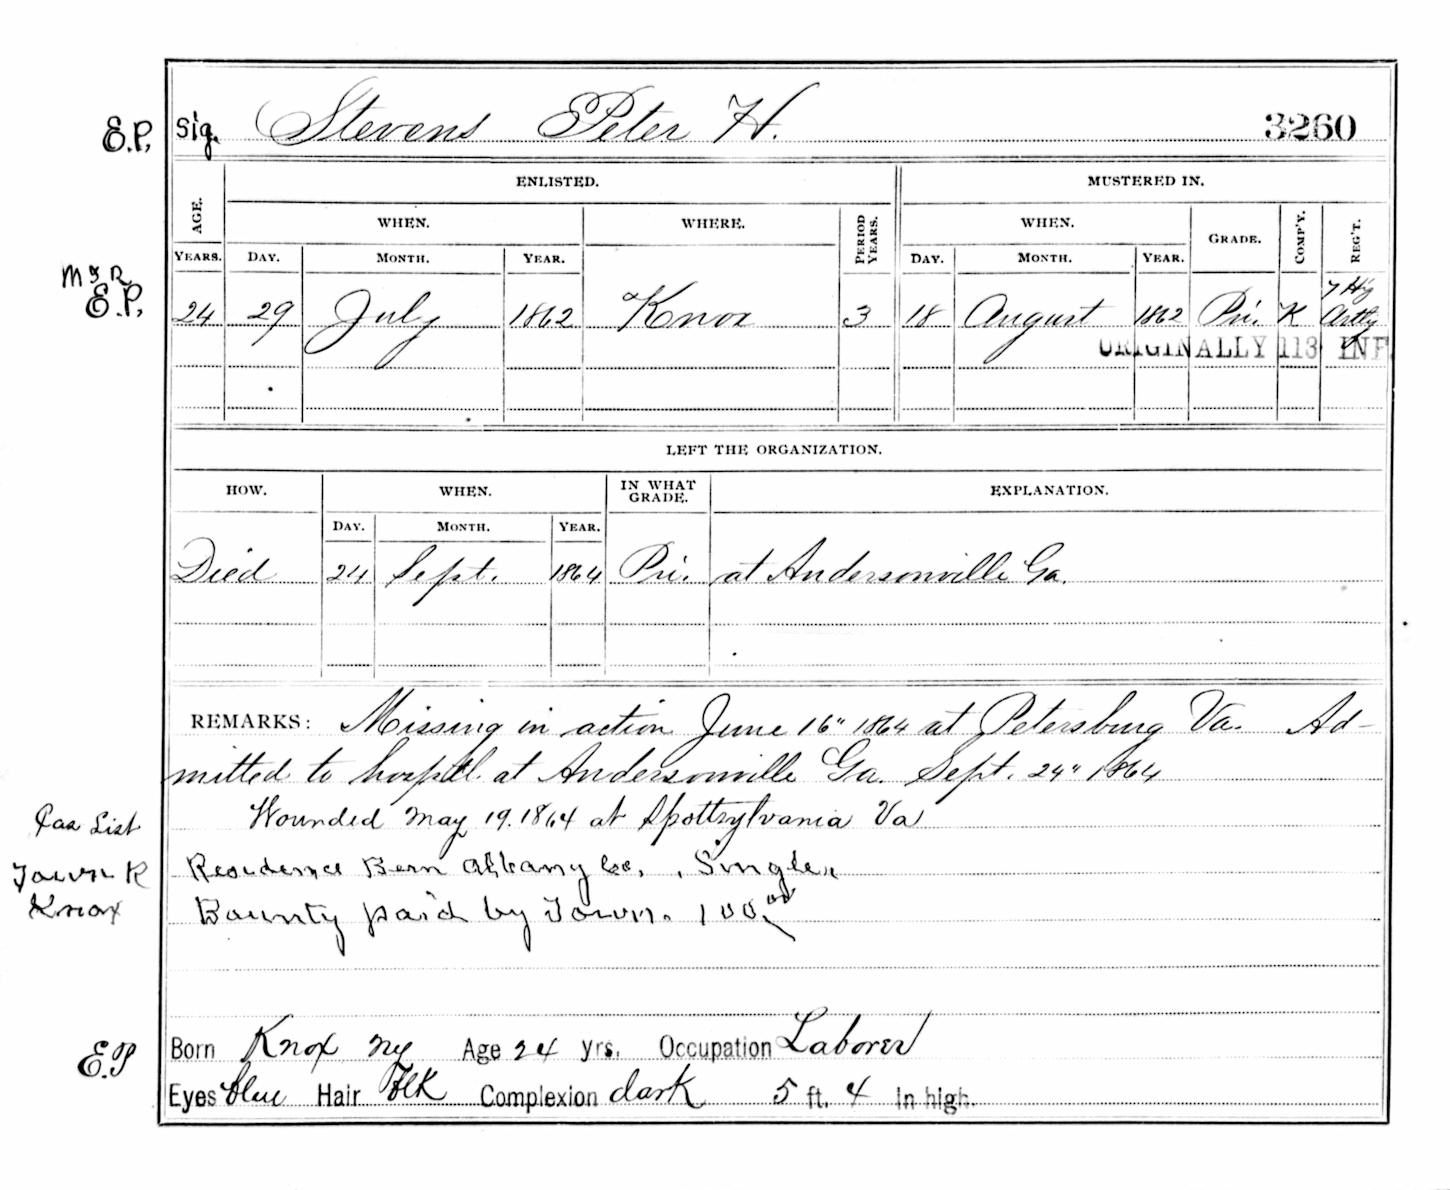 E.P. Sig. Stevens Peter H. 3260
ENLISTED. MUSTERED IN.
AGE. WHEN. WHERE. PERIOD YEARS. WHEN. GRADE. COMP'Y. REG'T.
YEARS. DAY. MONTH. YEAR. DAY. MONTH. YEAR.
M & R
E.P. 24 29 July 1862 Knox 3 18 August 1862 Pri. K 7 Hy Arty
ORIGINALLY 113 INF
LEFT THE ORGANIZATION.
HOW. WHEN. IN WHAT GRADE. EXPLANATION.
DAY. MONTH. YEAR.
Died 24 Sept. 1864 Pri. at Andersonville Ga.
REMARKS: Missing in action June 16" 1864 at Petersburg Va. Ad-
mitted to hosptl. at Andersonville Ga. Sept. 24" 1864
Cas List Wounded May 19. 1864 at Spottsylvania Va
Town R Residence Bern Albany Co., Single
Knox Bounty paid by Town. 100.00
E.P. Born Knox Ny Age 24 yrs. Occupation Laborer
Eyes blue Hair Blk Complexion dark 5 ft. 4 In high.